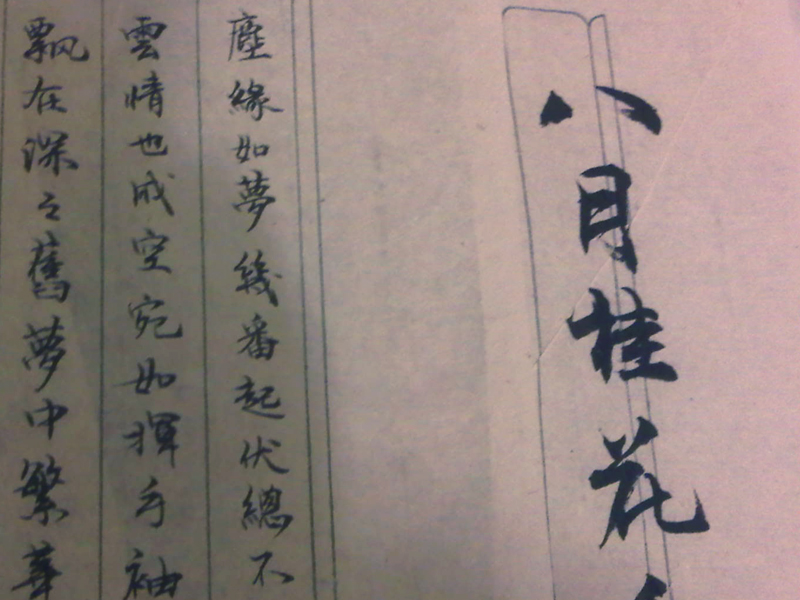 八月桂花
塵緣如夢幾番起伏總不
雲情也成空宛如揮手袖
飄在深々舊夢中繁華